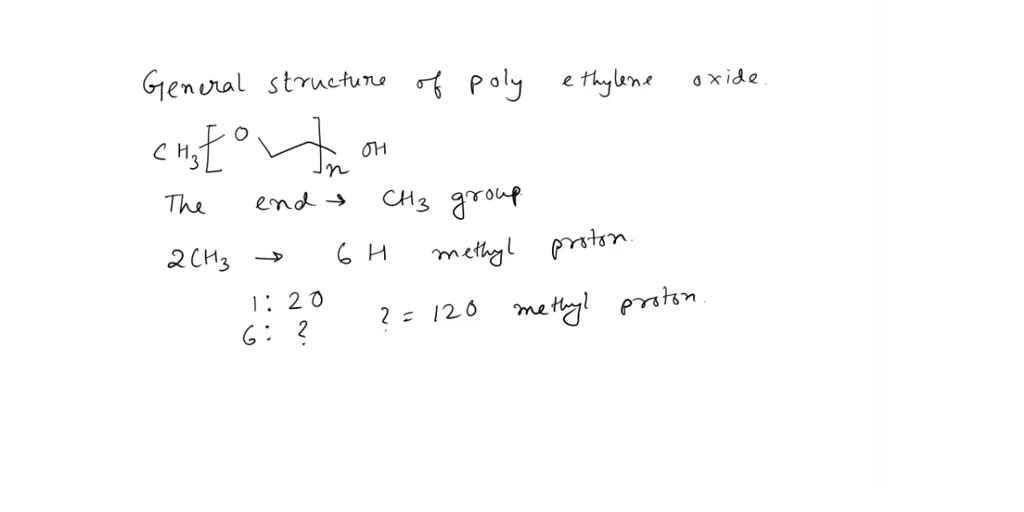 General structure of poly ethylene oxide.
CH3[O ]n OH
The end → CH3 group
2CH3 → 6 H methyl proton.
1: 20
6: ?
? = 120 methyl proton.